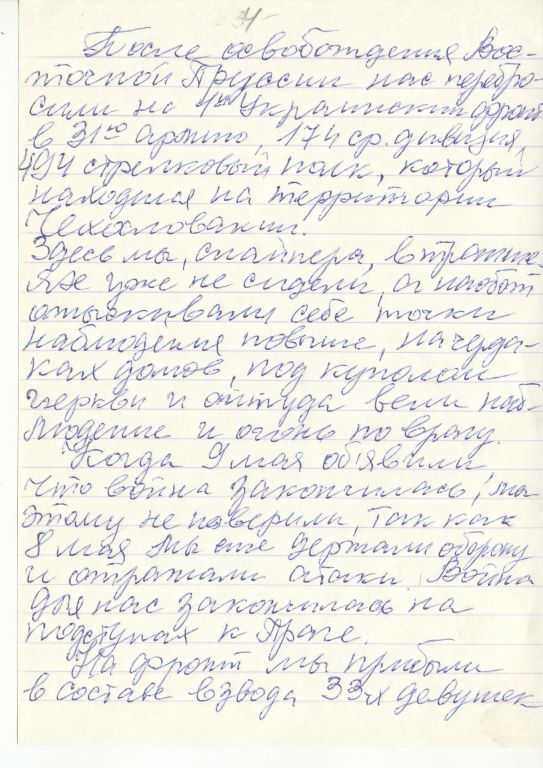 34
После освобождения Вос-
точной Пруссии нас перебро-
сили на 1ый Украинский фронт
в 31ю армию, 174 ср. дивизия,
494 стрелковый полк, который
находился на территории
Чехословакии.
Здесь мы, снайпера, в траншее
уже не сидели, а наобот
отыскивали себе точки
наблюдения повыше, на черда-
ках домов, под куполом
церкви и оттуда вели наб-
людение и огонь по врагу.
Когда 9 мая объявили
что война закончилась, мы
этому не поверили, так как
8 мая мы еще держали оборону
и отражали атаки. Война
для нас закончилась на
подступах к Праге.
На фронт мы прибыли
в составе взвода 33х девушек